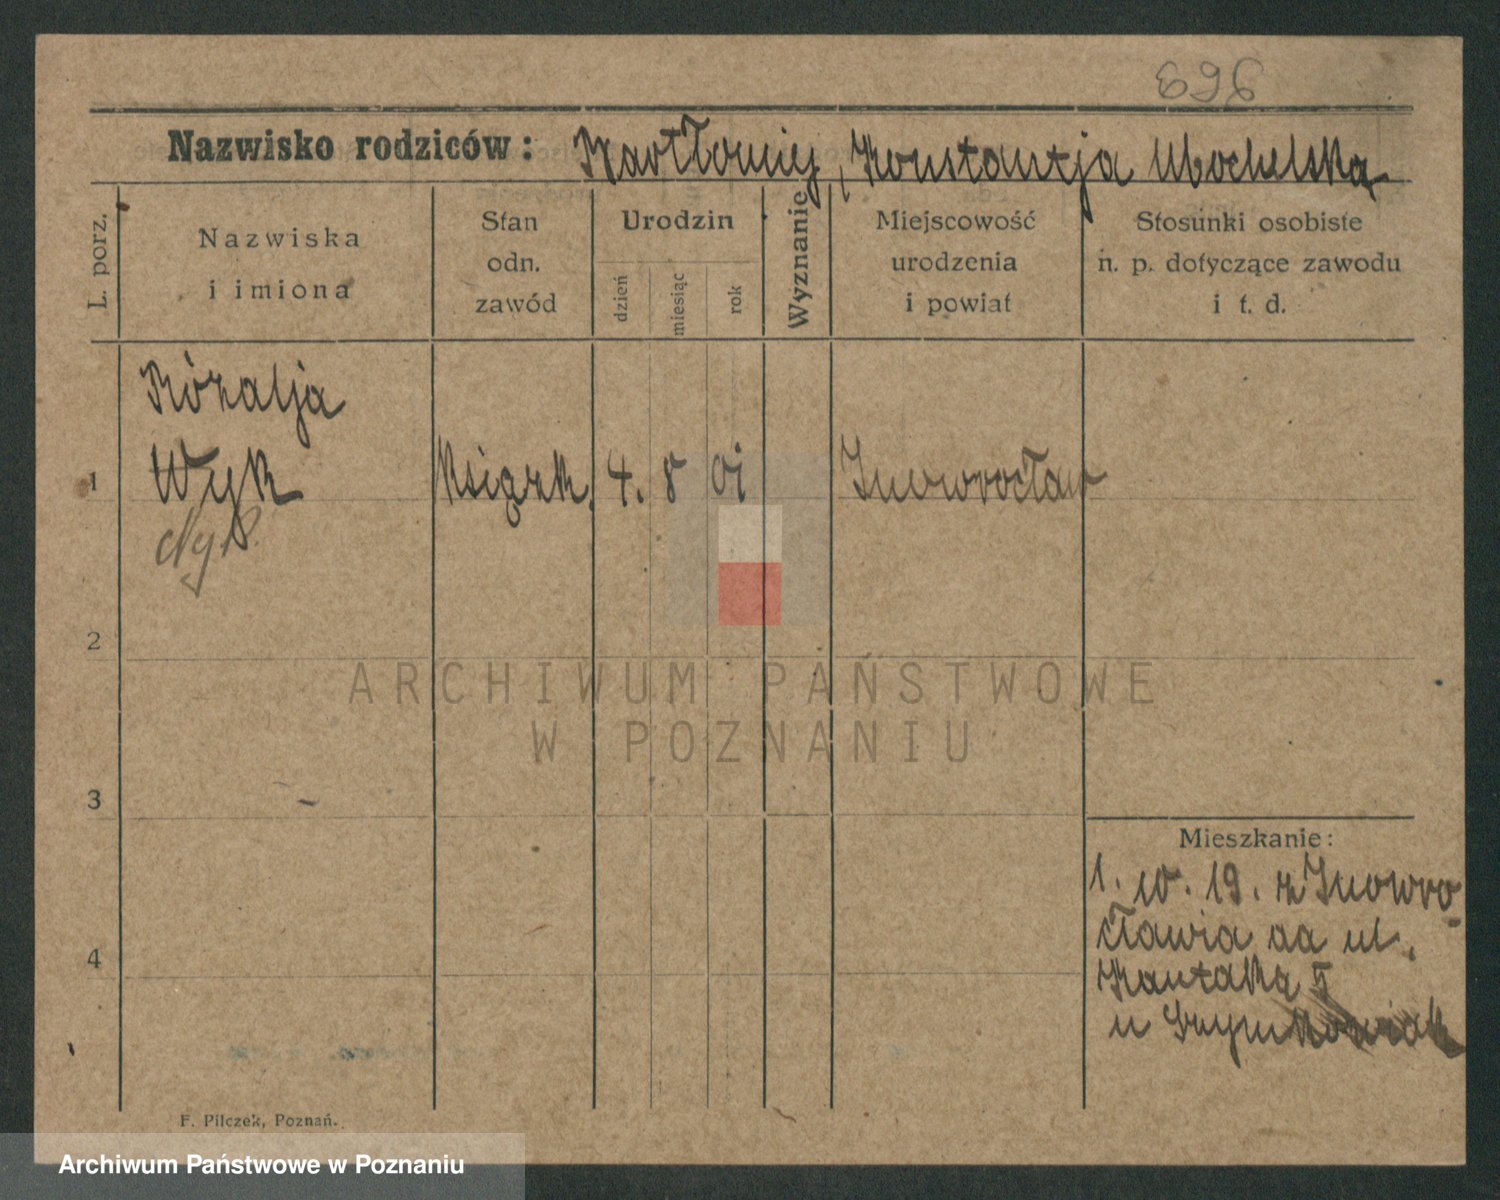 Nazwisko rodziców: Bartłomiej, Konstantja Mochelska
L. porz.
Nazwiska i imiona
Stan odn. zawód
Urodzin
dzień
miesiąc
rok
Wyznanie
Miejscowość urodzenia i powiat
Stosunki osobiste n. p. dotyczące zawodu i t. d.
Rózalja
1 Wyk Książk. 4. 8 01 Inowrocław
2
3
4
Mieszkanie:
1. 10. 19. z Inowro-
cławia na ul.
Kantaka 5
u Szymkowiak
F. Pilczek, Poznań.
ARCHIWUM PAŃSTWOWE
W POZNANIU
Archiwum Państwowe w Poznaniu